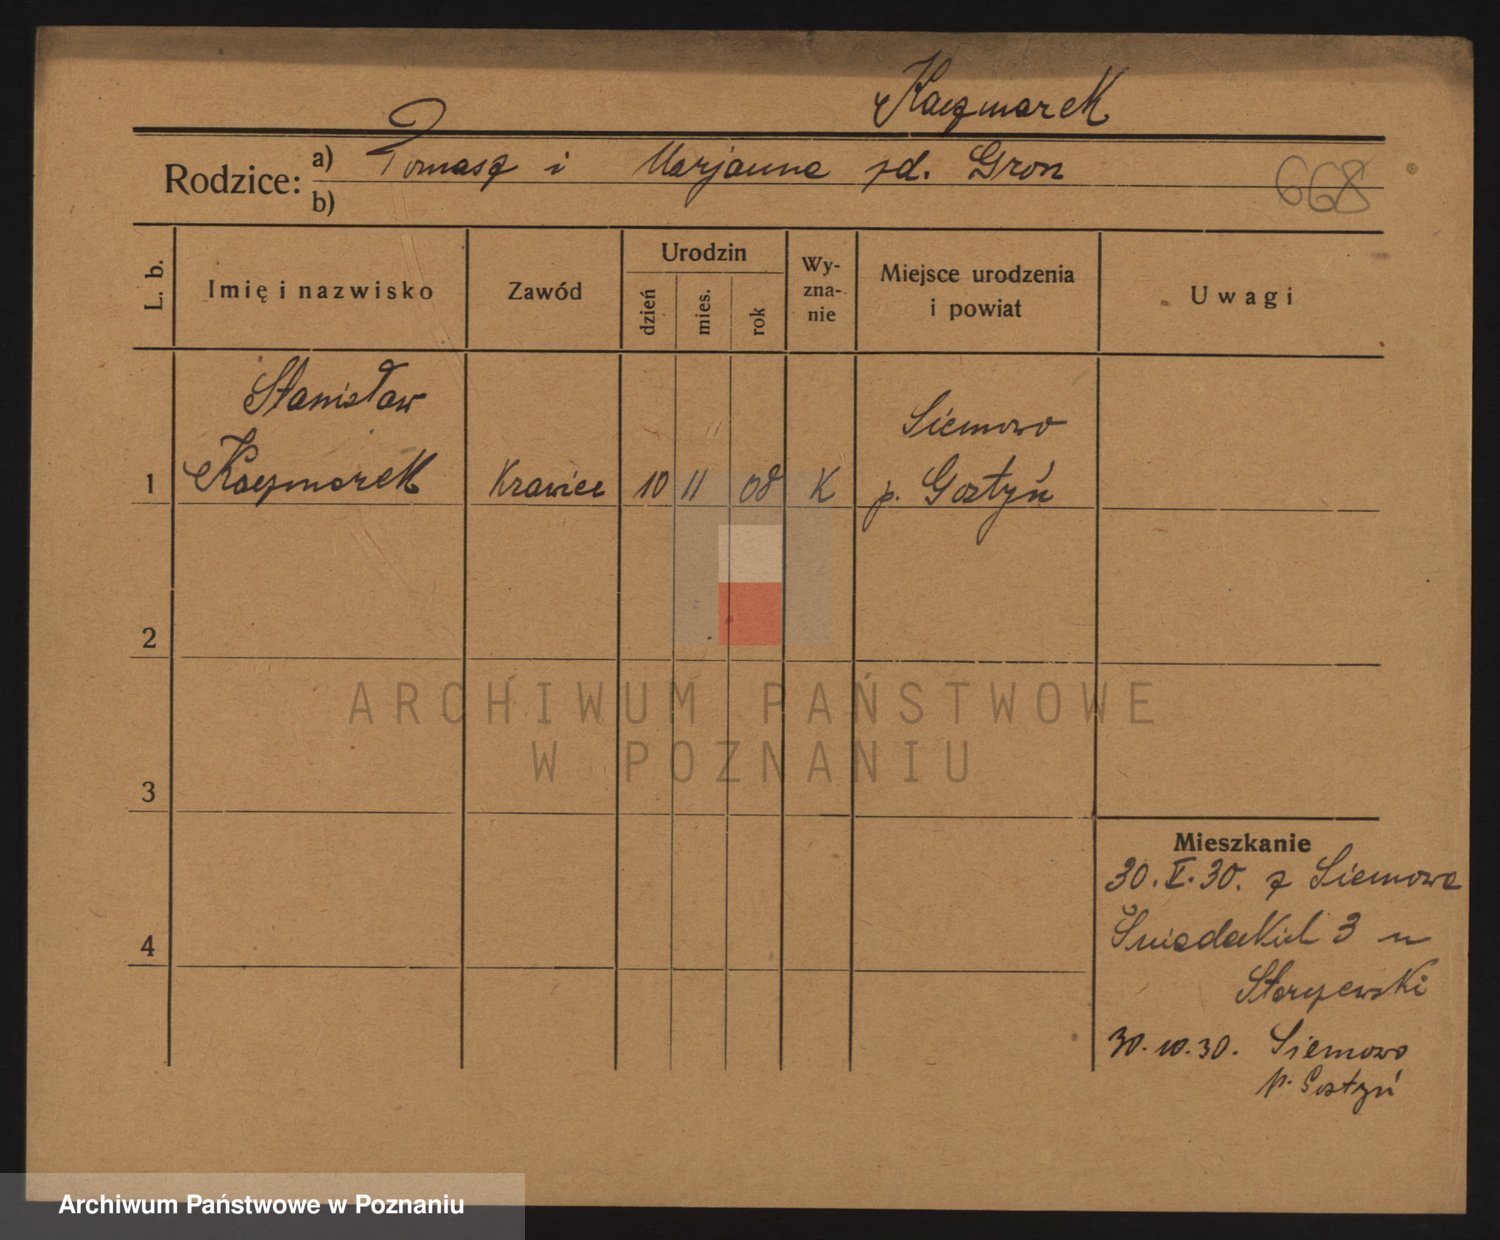 Kaczmarek
Rodzice: a) Tomasz i Marjanna zd. Gron
b)
668
L. b.
Imię i nazwisko
Zawód
Urodzin
dzień
mies.
rok
Wy-
zna-
nie
Miejsce urodzenia
i powiat
Uwagi
Stanisław
Kaczmarek
1
Krawiec
10
11
08
K
Siemowo
p. Gostyń
2
ARCHIWUM PAŃSTWOWE
W POZNANIU
3
Mieszkanie
30. V. 30. z Siemowa
Śniadeckich 3 u
4
30.10.30. Siemowo
p. Gostyń
Archiwum Państwowe w Poznaniu